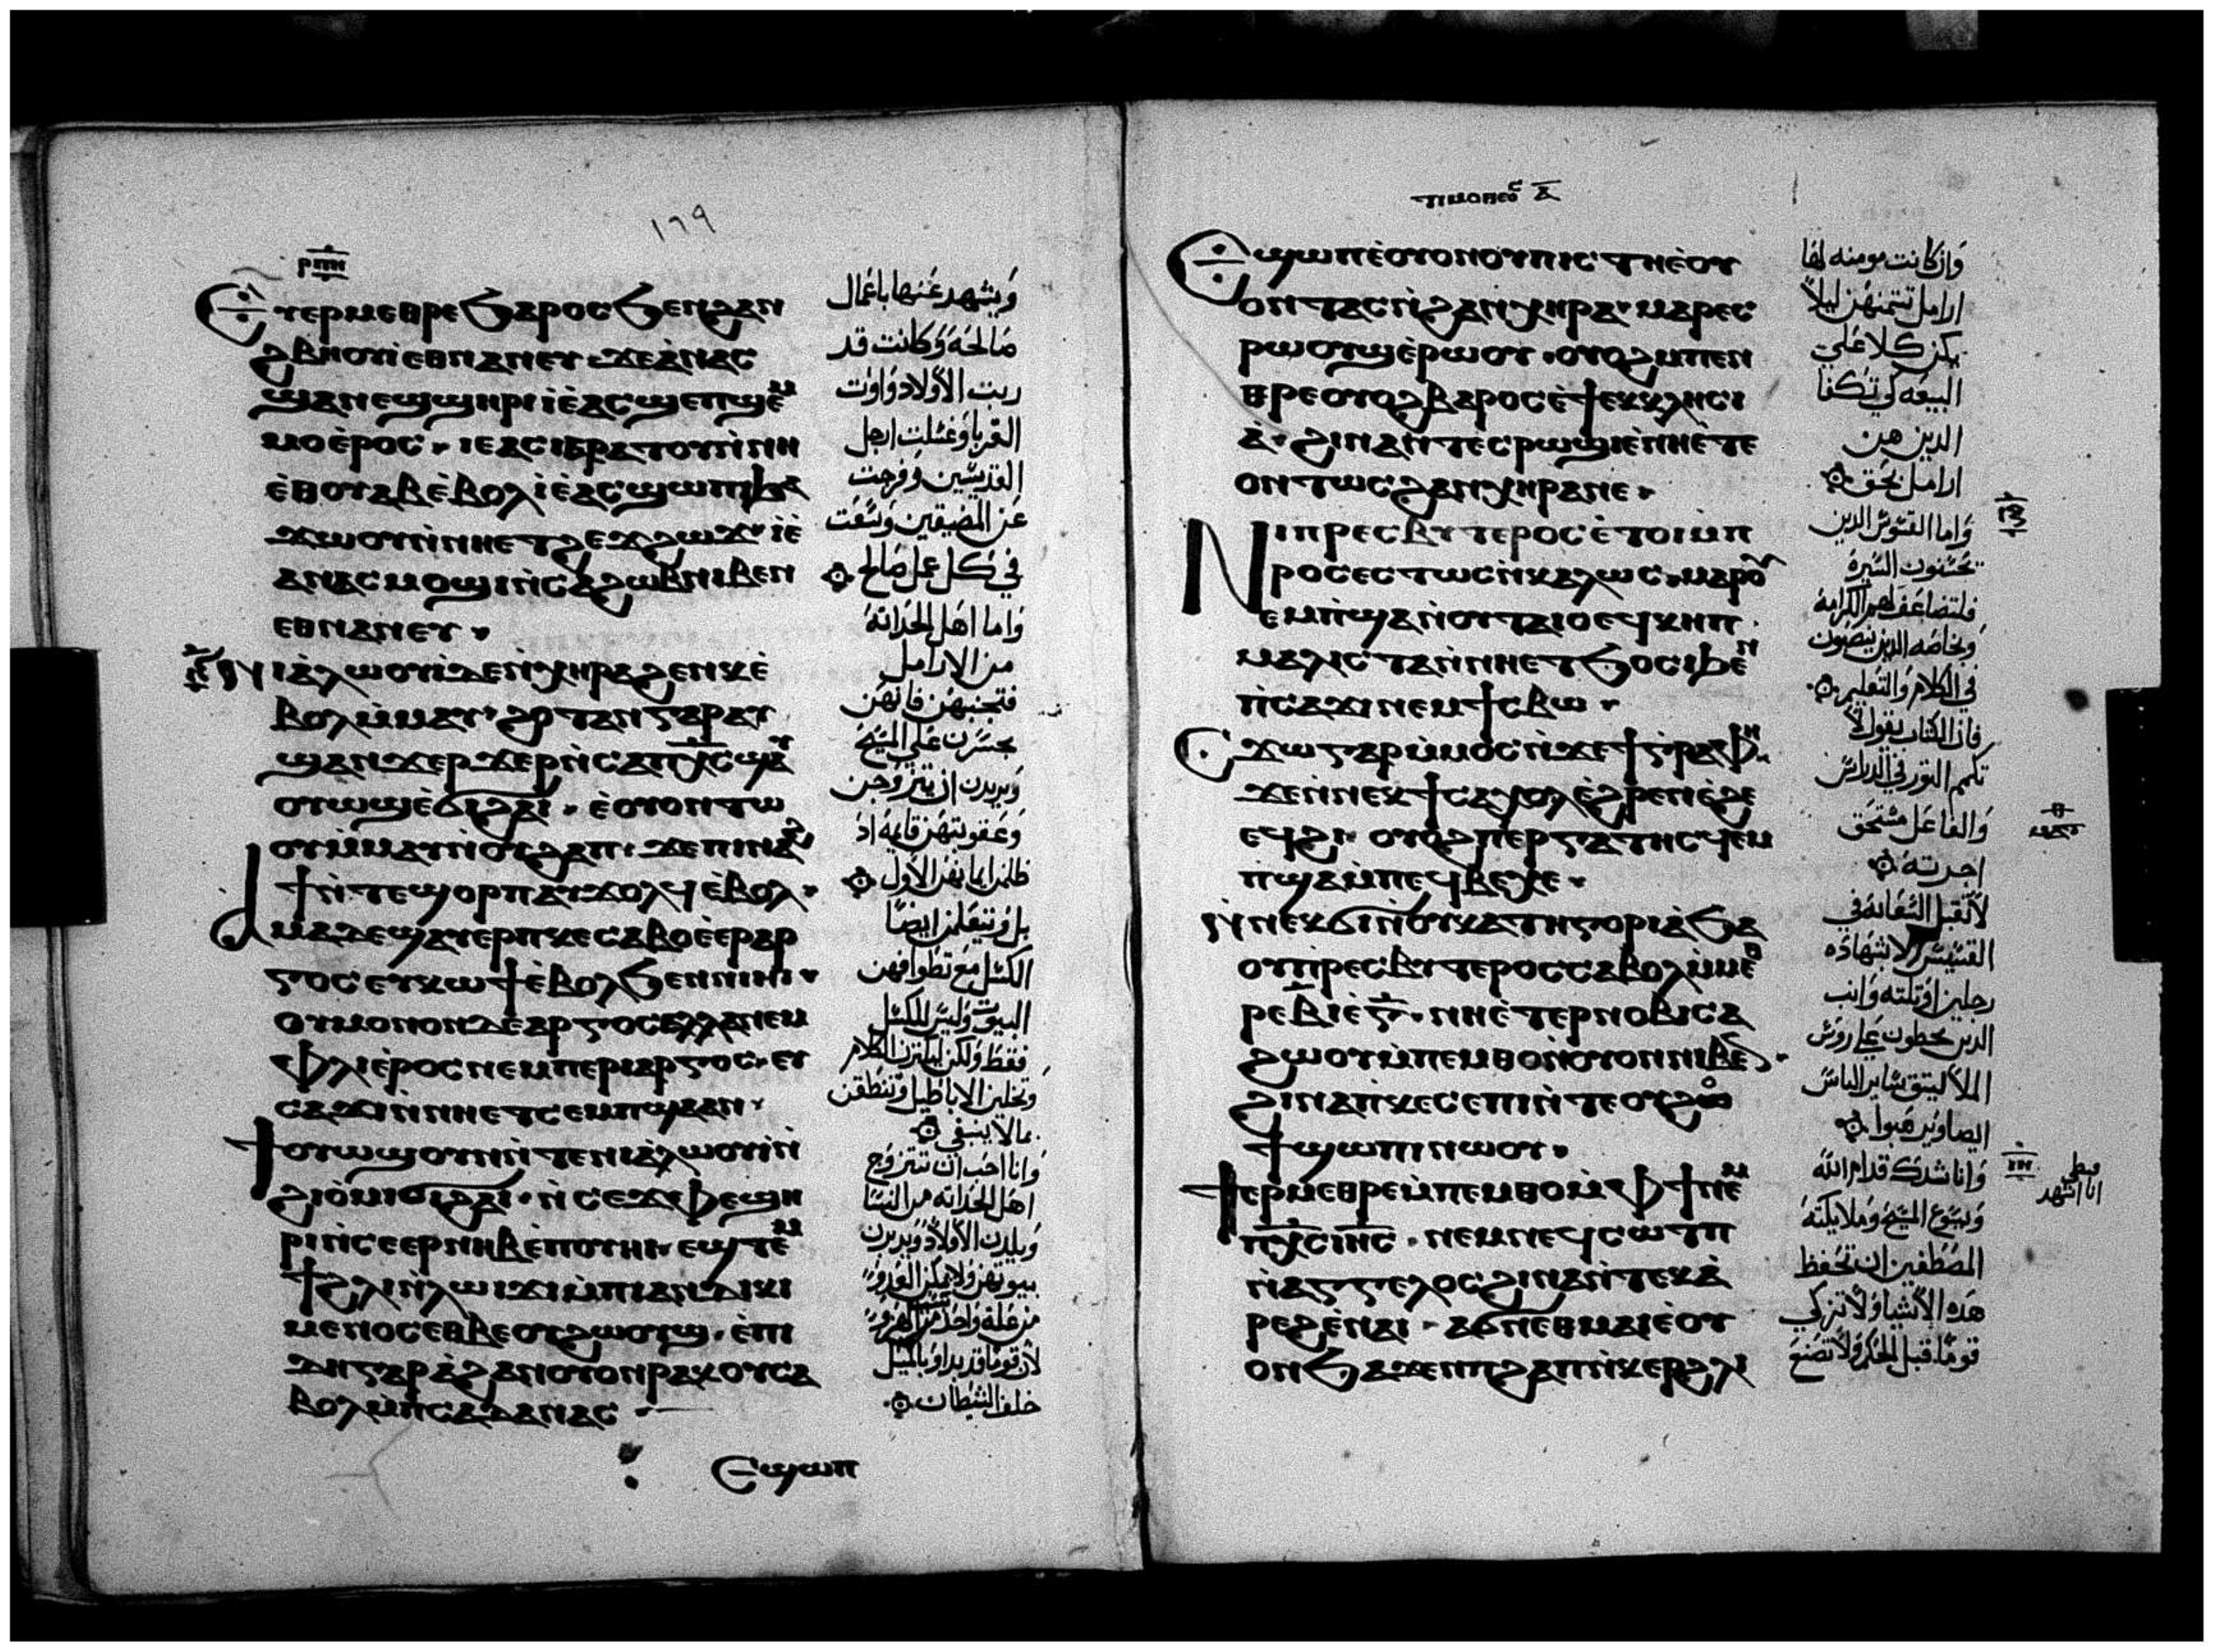 ⲣⲡⲏ
١٦٩
Ⲉⲩⲉⲣⲙⲉⲑⲣⲉ ϧⲁⲣⲟⲥ ϧⲉⲛϩⲁⲛ
ϩⲃⲏⲟⲩⲓ ⲉⲑⲛⲁⲛⲉⲩ ϫⲉ ⲁⲛⲁⲥ
ϣⲁⲛⲉϣ ϣⲏⲣⲓ ⲓⲉ ⲁⲥϣⲉⲡϣⲉⲙ
ⲙⲟ ⲉⲣⲟⲥ ⲓⲉ ⲁⲥⲓⲁⲣⲁⲧⲟⲩ ⲛⲛⲏ
ⲉⲑⲟⲩⲁⲃ ⲉⲃⲟⲗ ⲓⲉ ⲁⲥϣⲱⲡⲓ ϧⲁ
ϫⲱⲟⲩ ⲛⲛⲏ ⲉⲧϩⲉϫϩⲱϫ ⲓⲉ
ⲁⲛⲁⲥⲙⲟϣⲓ ⲛⲥⲁ ϩⲱⲃ ⲛⲓⲃⲉⲛ
ⲉⲑⲛⲁⲛⲉⲩ
ⲛⲓⲁⲗⲱⲟⲩⲓ ⲇⲉ ⲛⲭⲏⲣⲁ ϩⲉⲛⲕ ⲉ
ⲃⲟⲗ ⲙⲙⲁⲩ ϩⲟⲧⲁⲛ ⲅⲁⲣ ⲁⲩ
ϣⲁⲛϫⲉⲣϫⲉⲣ ⲛⲥⲁ ⲡⲭⲥ ϣⲁⲩ
ⲟⲩⲱϣ ⲉϭⲓϩⲁⲓ ⲉⲟⲩⲟⲛⲧⲱ
ⲟⲩ ⲙⲙⲁⲩ ⲛⲟⲩϩⲁⲡ ϫⲉ ⲡⲓⲛⲁϩ
ϯ ⲛⲧⲉ ϣⲟⲣⲡ ⲁⲩϫⲟⲗϥ ⲉⲃⲟⲗ
ⲁⲙⲁ ⲇⲉ ϣⲁⲩⲉⲣⲡⲕⲉⲥⲁⲃⲟ ⲉⲉⲣⲁⲣ
ⲅⲟⲥ ⲉⲩⲕⲱϯ ⲉⲃⲟⲗ ϧⲉⲛ ⲛⲓⲏⲓ
ⲟⲩⲙⲟⲛⲟⲛ ⲇⲉ ⲁⲣⲅⲟⲥ ⲁⲗⲗⲁ ⲛⲉⲙ
ⲫⲗⲓⲉⲣⲟⲥ ⲛⲉⲙ ⲡⲉⲣⲓⲁⲣⲅⲟⲥ ⲉⲩ
ⲥⲁϫⲓ ⲛⲛⲏ ⲉⲧⲥⲉⲙⲡϣⲁ ⲁⲛ
ϯⲟⲩⲱϣ ⲟⲩⲛ ⲛⲧⲉ ⲛⲓⲁⲗⲱⲟⲩⲓ ⲛ
ϩⲓⲟⲙⲓ ϭⲓϩⲁⲓ ⲛⲥⲉϫⲫⲉ ϣⲏ
ⲣⲓ ⲛⲥⲉⲉⲣⲛⲏⲃ ⲉⲡⲟⲩⲏⲓ ⲉϣⲧⲉⲙ
ϯϩⲗⲓ ⲛⲗⲱⲓϫⲓ ⲙⲡⲓⲁⲛⲇⲓⲕⲓ
ⲙⲉⲛⲟⲥ ⲉⲑⲃⲉ ⲟⲩϩⲱⲟⲩϣ ⲉⲡⲓ
ⲇⲏ ⲅⲁⲣ ⲁ ϩⲁⲛⲟⲩⲟⲛ ⲣⲁⲕⲟⲩ ⲥⲁ
ⲃⲟⲗ ⲙⲡⲥⲁⲇⲁⲛⲁⲥ
Ⲉϣⲱⲡ
وَيشهد عَنها باعمال
صَالحَه وَكانت قد
ربت الأولاد وَاوَت
الغربا وَغسلت ارجل
القديسين وفرجت
عَن المضيقين وَتبعت
في كل عمل صَالح
وَاما اهل الحداثة
من الارامل
فتجنبهن فانهن
يجسرن علي المسيح
وَيريدن ان يتزوجن
وَعقوبتهن قايمة اذ
ظلمن ايمانهن الأول
بل وَيتعلمن ايضًا
الكسل مع تطوافهن
البيوت وليس للكسل
فقط ولكن ليكثرن الكلام
وَتخلين الاباطيل وتنطقن
بما لا ينبغي
وَانا احب ان تتزوج
اهل الحداثة من النسا
وَيلدن الأولاد وَيدبرن
بيوتهن ولا يمكن العدو
من علة واحدة
لأن قوما قد بداو بالميل
خلف الشيطان
ⲧⲓⲙⲟⲑⲉⲟⲥ ⲁ̅
Ⲉϣⲱⲡ ⲉⲟⲩⲟⲛ ⲟⲩⲡⲓⲥⲧⲏ ⲉⲟⲩ
ⲟⲛⲧⲁⲥ ⲛϩⲁⲛⲭⲏⲣⲁ ⲙⲁⲣⲉⲥ
ⲣⲱⲟⲩϣ ⲉⲣⲱⲟⲩ ⲟⲩⲟϩ ⲙⲡⲉⲛ
ⲑⲣⲉⲟⲩⲟϩ ⲃⲁⲣⲟⲥ ⲉϯⲉⲕⲕⲗⲏⲥⲓ
ⲁ ϩⲓⲛⲁ ⲛⲧⲉⲥⲣⲱϣⲓ ⲉⲛⲏ ⲉⲧⲉ
ⲟⲛⲧⲱⲥ ϩⲁⲛⲭⲏⲣⲁ ⲛⲉ
Ⲛⲓⲡⲣⲉⲥⲃⲩⲧⲉⲣⲟⲥ ⲉⲧⲟⲓ ⲙⲡ
ⲣⲟⲉⲥⲧⲱⲥ ⲛⲕⲁⲗⲱⲥ ⲙⲁⲣⲟⲩ
ⲉⲙⲡϣⲁ ⲛⲟⲩⲧⲁⲓⲟ ⲉϥⲕⲏⲡ
ⲙⲁⲗⲓⲥⲧⲁ ⲛⲛⲏ ⲉⲧϧⲟⲥⲓ ϧⲉⲛ
ⲡⲥⲁϫⲓ ⲛⲉⲙ ϯⲥⲃⲱ
Ⲥϫⲱ ⲅⲁⲣ ⲙⲙⲟⲥ ⲛϫⲉ ϯⲅⲣⲁⲫⲏ
ϫⲉ ⲛⲛⲉⲕϯⲥⲁϫⲟⲗ ⲉϩⲣⲉⲛ ⲉϩⲉ
ⲉϥϩⲓ ⲟⲩⲟϩ ⲡⲉⲣⲅⲁⲧⲏⲥ ϥⲉⲙ
ⲡϣⲁ ⲙⲡⲉϥⲃⲉⲭⲉ
ⲛⲛⲉⲕϭⲓ ⲛⲟⲩⲕⲁⲧⲏⲅⲟⲣⲓⲁ ϧⲁ
ⲟⲩⲡⲣⲉⲥⲃⲩⲧⲉⲣⲟⲥ ⲥⲁⲃⲟⲗ ⲙⲙⲉⲑ
ⲣⲉ ⲃ̅ ⲓⲉ ⲅ̅ ⲛⲏ ⲉⲧⲉⲣⲛⲟⲃⲓ ⲥⲁ
ϩⲱⲟⲩ ⲙⲡⲉⲙⲑⲟ ⲛⲟⲩⲟⲛ ⲛⲓⲃⲉⲛ
ϩⲓⲛⲁ ⲡⲕⲉⲥⲉⲡⲓ ⲛⲧⲉ ⲟⲩϩⲟ
ϯ ϣⲱⲡⲓ ⲛⲱⲟⲩ
ϯⲉⲣⲙⲉⲑⲣⲉ ⲙⲡⲉⲙⲑⲟ ⲙⲫϯ ⲛⲉⲙ
ⲡⲭⲥ ⲓⲏⲥ ⲛⲉⲙ ⲛⲉϥⲥⲱⲧⲡ
ⲛⲁⲅⲅⲉⲗⲟⲥ ϩⲓⲛⲁ ⲛⲧⲉⲕⲁ
ⲣⲉϩ ⲉⲛⲁⲓ ⲁϭⲛⲉ ⲑⲙⲁⲓⲉ ⲟⲩ
ⲟⲛ ϧⲁϫⲉⲛ ⲡϩⲁⲡ ⲛⲕⲉⲣ ϩⲗⲓ
وَان كانت مومنه لها
ارامل تتمنهن ليلا
يكن كلا علي
البيعه كي تكفا
الدين هن
ارامل بحق
وَاما القسوس الدين
يحسنون السيرة
فلتضاعف لهم الكرامة
وَبخاصه الدين ينصبون
في الكلام وَالتعليم
فان الكتاب يقول لا
تكمم الثور في الدراس
وَالفاعل مستحق
اجرته
لا تقبل السعاية في
القسيس الا بشهادة
رجلين او تلته وَانب
الدين يخطون علي روس
الملا ليتقي ساير الناس
وَانا ناشدك قدام الله
وَيسوع المسيح وَملايكته
المصطفين ان تحفظ
هده الأشيا وَلا تزكي
قوما قبل الحكم وَلا تصنع
قبطي
انا اشهد